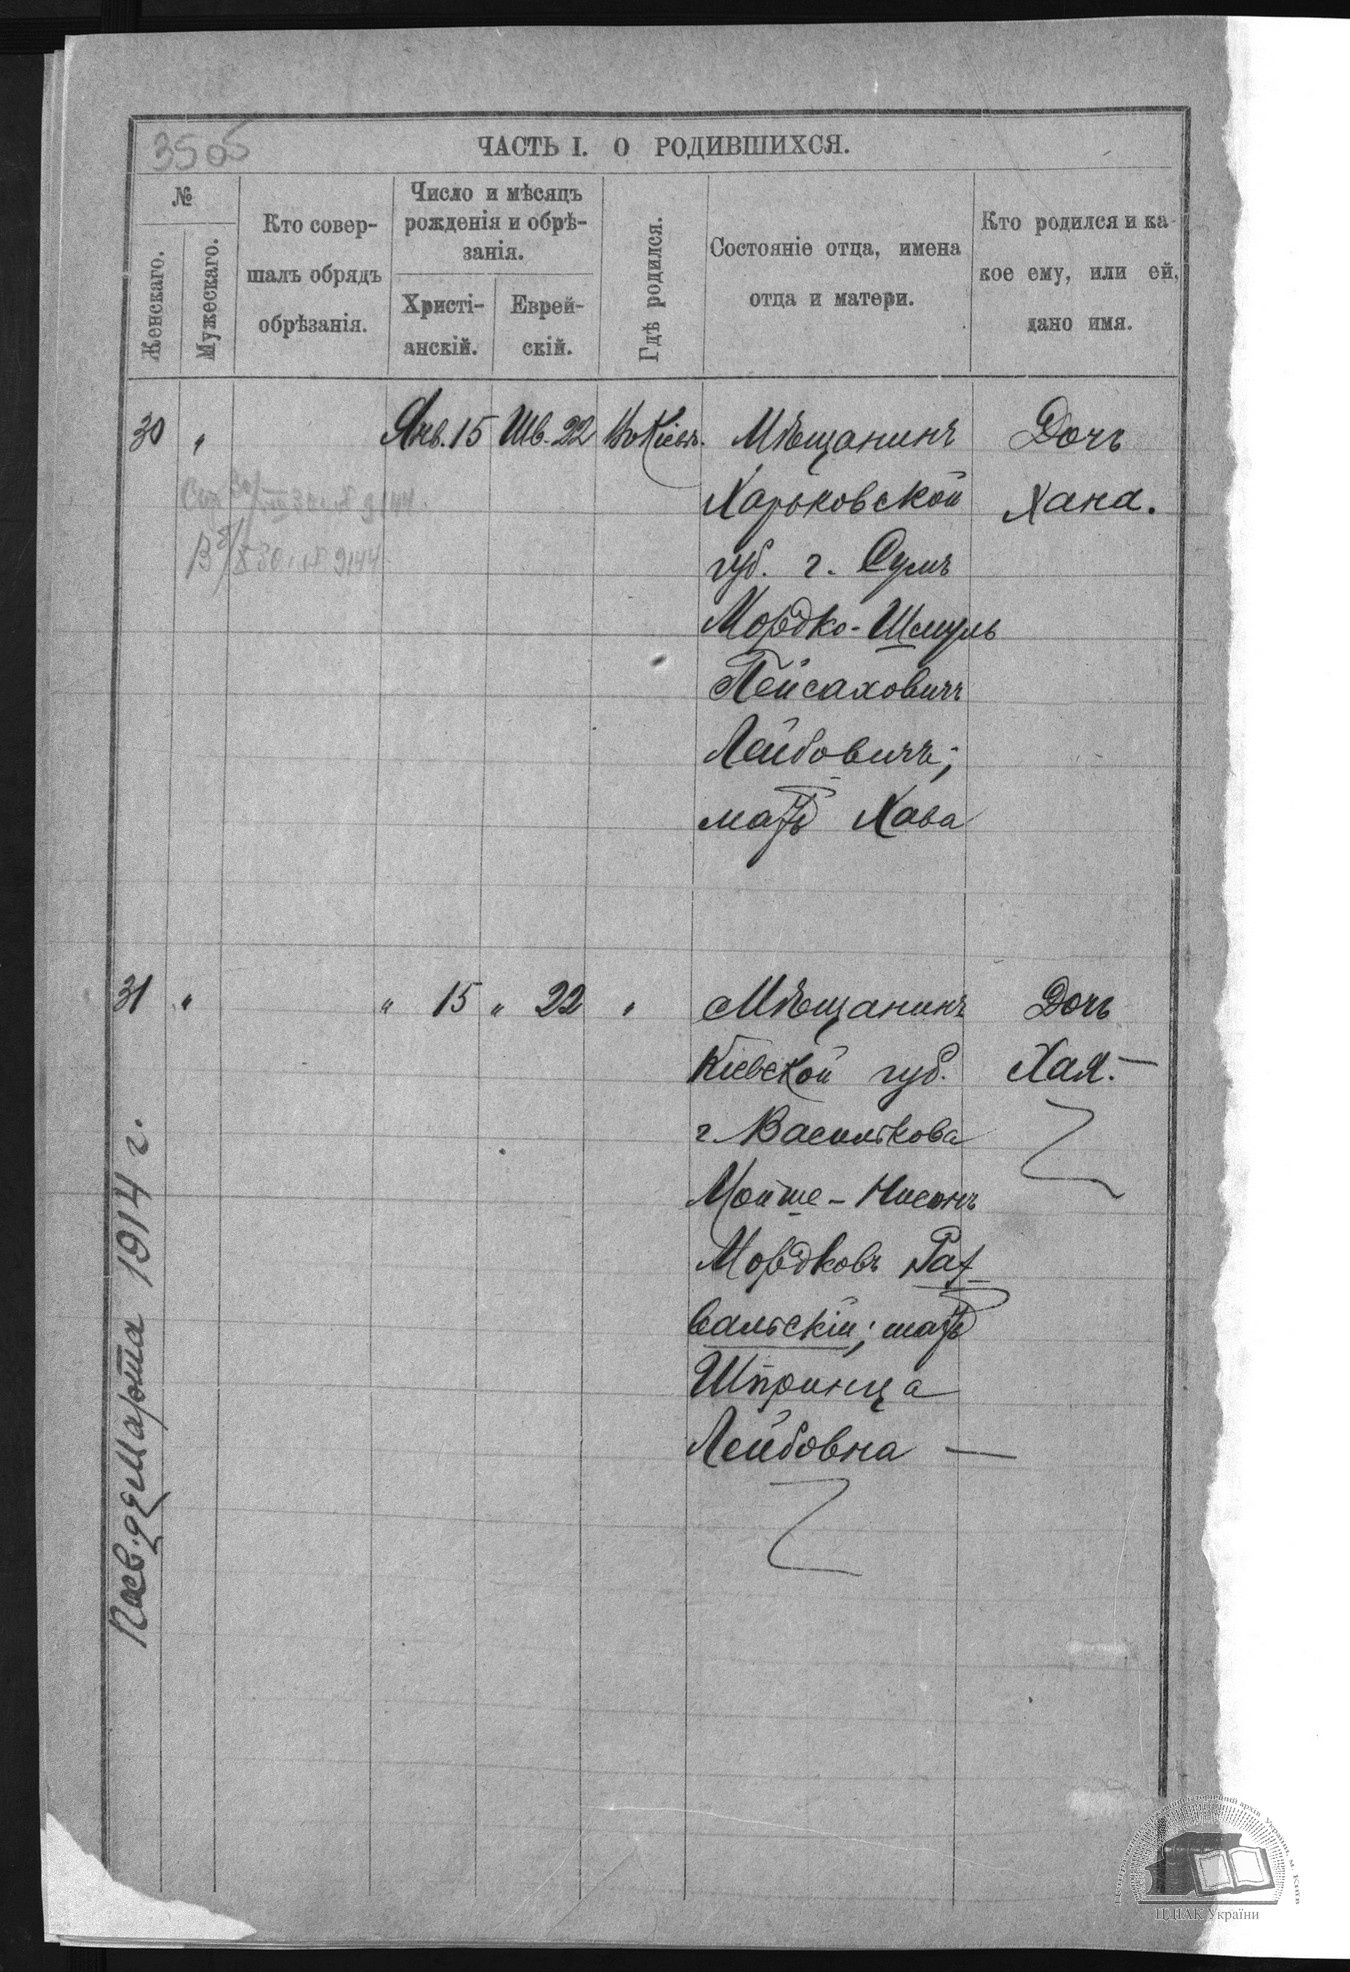 3505
ЧАСТЬ I. О РОДИВШИХСЯ.
№
Женскаго.
Мужескаго.
Кто совер-
шалъ обрядъ
обрѣзанія.
Число и мѣсяцъ
рожденія и обрѣ-
занія.
Христі-
анскій.
Еврей-
скій.
Гдѣ родился.
Состояніе отца, имена
отца и матери.
Кто родился и ка-
кое ему, или ей,
дано имя.
30 " Янв. 15 Шв. 22 Въ Кіевѣ. Мѣщанинъ Дочь
Харьковской Хана.
губ. г. Сумъ
Мордко-Шмуль
Пейсаховичъ
Лейбовичъ;
мать Хава
31 " " 15 " 22 " Мѣщанинъ Дочь
Кіевской губ. Хая.—
г. Василькова
Мойше-Нисонъ
Мордковъ Рат-
вальскій; мать
Шпринца
Лейбовна —
Марта 1914 г.
ЦДІАК України